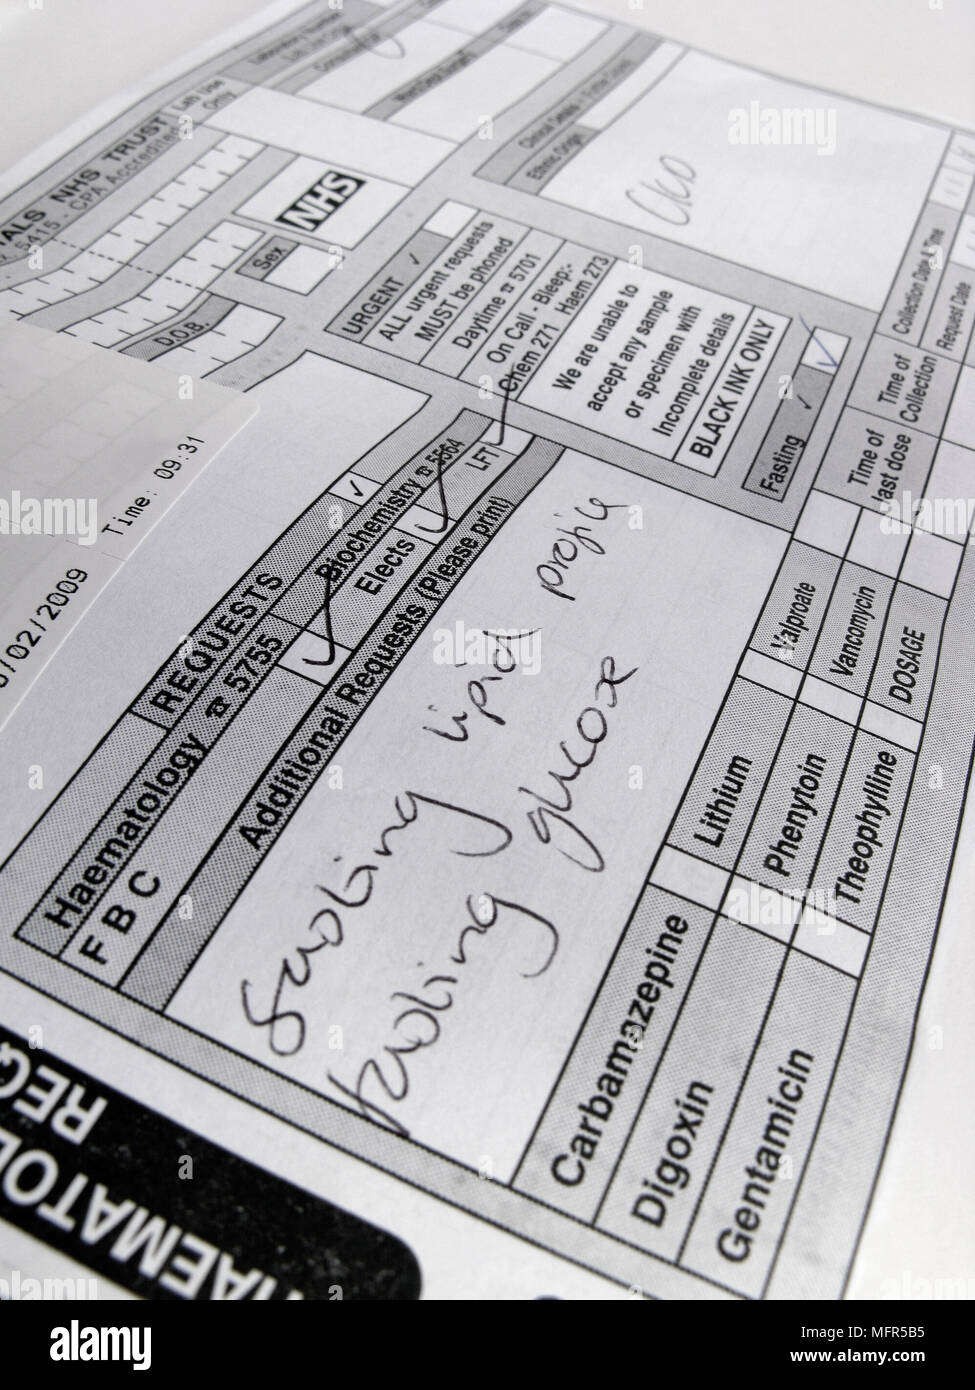 HOSPITALS NHS TRUST
5415 - CPA Accredited
Lab Use
Only
Laboratory Number
NHS
Sex
D.O.B.
Clinical Details
Ethnic Origin
URGENT ✓
ALL urgent requests
MUST be phoned
Daytime ☎ 5701
On Call - Bleep:-
Chem 271 Haem 273
We are unable to
accept any sample
or specimen with
Incomplete details
BLACK INK ONLY
Fasting ✓
Collection Date & Time
Request Date
Time of
Collection
Time of
last dose
Time: 09:31
/02/2009
REQUESTS ✓
Haematology ☎ 5755
Biochemistry ☎ 5564
F B C
Elects
LFT
Additional Requests (Please print)
Fasting lipid profile
Fasting glucose
Carbamazepine
Lithium
Valproate
Digoxin
Phenytoin
Vancomycin
Gentamicin
Theophylline
DOSAGE
alamy
Image ID: MFR5B5
www.alamy.com